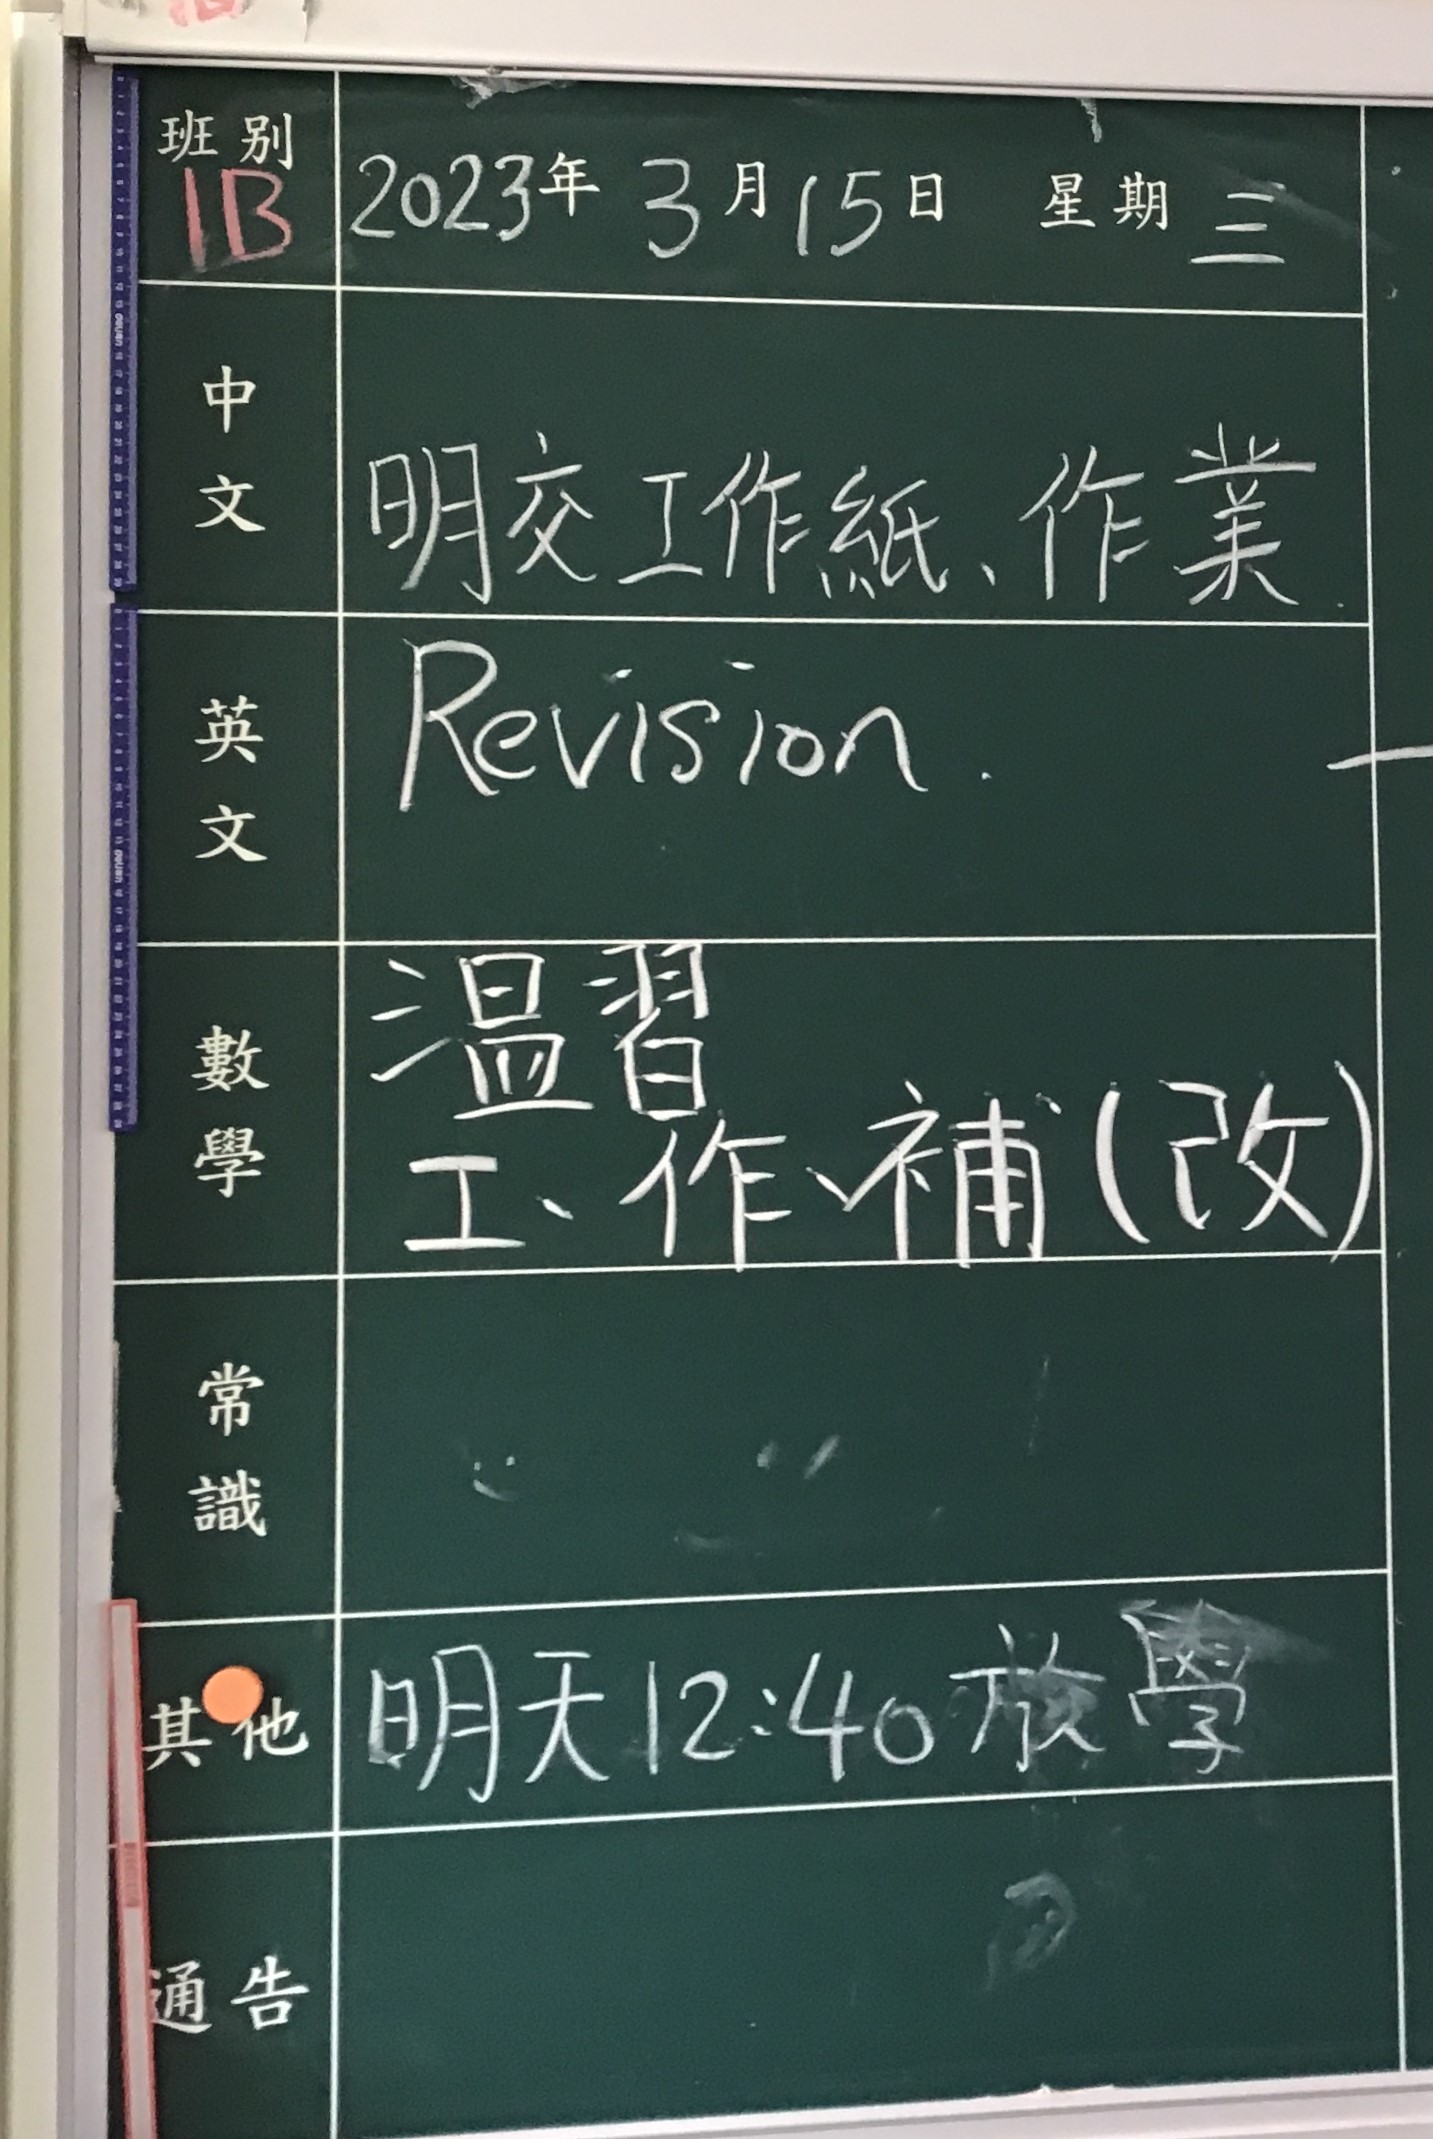 班別
1B
2023年 3月15日 星期三
中文
明交工作紙、作業
英文
Revision.
數學
溫習
工、作、補(改)
常識
其他
明天12:40放學
通告